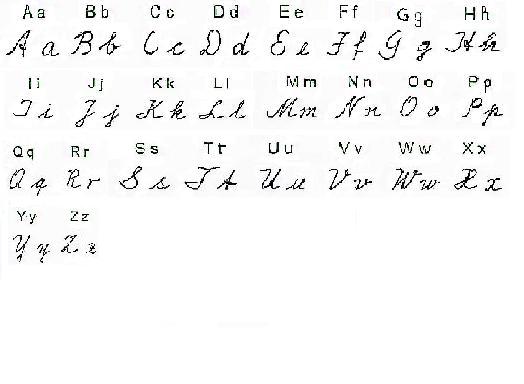 Aa Bb Cc Dd Ee Ff Gg Hh
A a B b C c D d E e F f G g H h
Ii Jj Kk Ll Mm Nn Oo Pp
I i J j K k L l M m N n O o P p
Qq Rr Ss Tr Uu Vv Ww Xx
Q q R r S s T t U u V v W w X x
Yy Zz
Y y Z z